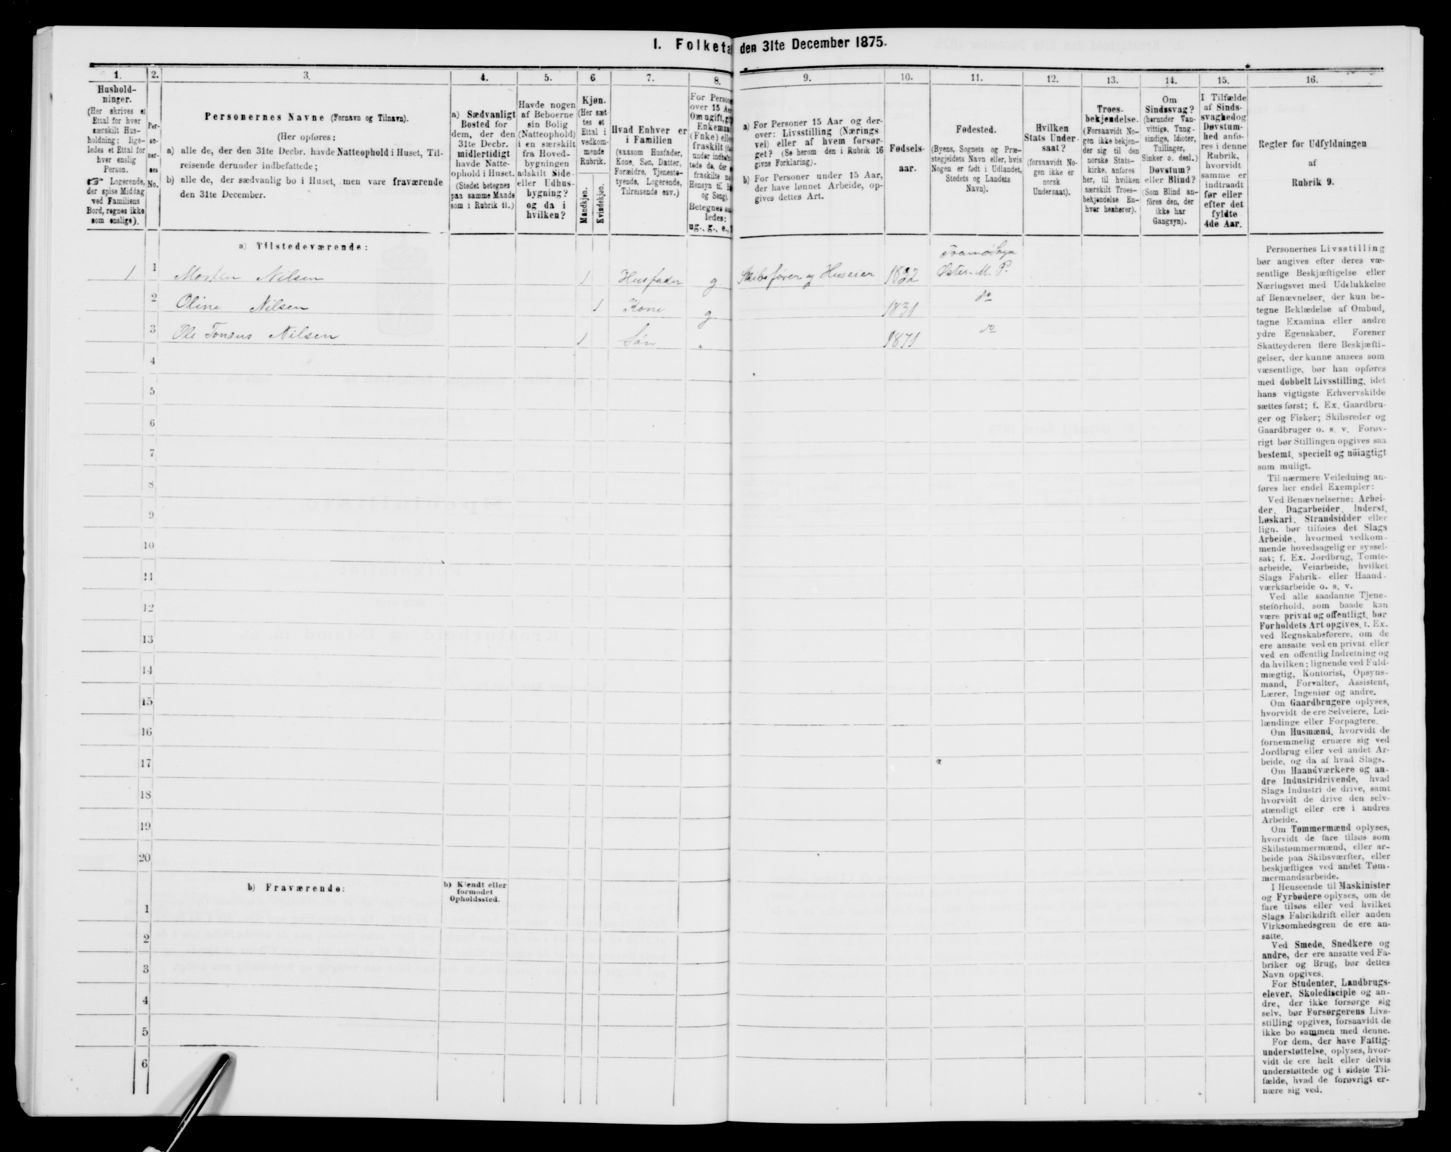 1. Folketæ den 31te December 1875.
1.
2.
3.
4.
5.
6
7.
8.
9.
10.
11.
12.
13.
14.
15.
16.
Hushold-
ninger.
(Her skrives et
Ettal for hver
særskilt Hus-
holdning; lige-
ledes et Ettal for
hver enslig
Person.
Logerende,
der spise Middag
ved Familiens
Bord, regnes ikke
som enslige).
Per-
so-
ner-
nes
No.
Personernes Navne (Fornavn og Tilnavn).
(Her opføres:
a) alle de, der den 31te Decbr. havde Natteophold i Huset, Til-
reisende derunder indbefattede;
b) alle de, der sædvanlig bo i Huset, men vare fraværende
den 31te December.
a) Sædvanligt
Bosted for
dem, der den
31te Decbr.
midlertidigt
havde Natte-
ophold i Huset.
(Stedet betegnes
paa samme Maade
som i Rubrik 11.)
Havde nogen
af Beboerne
sin Bolig
(Natteophold)
i en særskilt
fra Hoved-
bygningen
adskilt Side-
eller Udhus-
bygning?
og da i
hvilken?
Kjøn.
(Her sæt-
tes et
Ettal i
vedkom-
mende
Rubrik.
Mandkjøn.
Kvindekjøn.
Hvad Enhver er
i Familien
(saasom Husfader,
Kone, Søn, Datter,
Forældre, Tjeneste-
tyende, Logerende,
Tilreisende osv.)
For Person
over 15 Aar
Om ugift, gift
Enkemand
(Enke) eller
fraskilt
Hensyn til
og Seng
Betegnes
ledes:
ug., g., e., f
a) For Personer 15 Aar og der-
over: Livsstilling (Nærings
vei) eller af hvem forsør-
get? (Se herom den i Rubrik 16
givne Forklaring).
b) For Personer under 15 Aar,
der have lønnet Arbeide, op-
gives dettes Art.
Fødsels-
aar.
Fødested.
(Byens, Sognets og Præ-
stegjeldets Navn eller, hvis
Nogen er født i Udlandet,
Stedets og Landets
Navn).
Hvilken
Stats Under-
saat?
(forsaavidt No-
gen ikke er
norsk
Undersaat).
Troes-
bekjendelse.
(Forsaavidt No-
gen ikke bekjen-
der sig til den
norske Stats-
kirke, anføres
her, til hvilken
særskilt Troes-
bekjendelse En-
hver henhører).
Om
Sindssvag?
(herunder Van-
vittige, Tung-
sindige, Idioter,
Tullinger,
Sinker o. desl.)
Døvstum?
eller Blind?
(Som Blind an-
føres den, der
ikke har
Gangsyn).
I Tilfælde
af Sinds-
svaghed og
Døvstum-
hed anfø-
res i denne
Rubrik,
hvorvidt
samme er
indtraadt
før eller
efter det
fyldte
4de Aar.
Regler for Udfyldningen
af
Rubrik 9.
a) Tilstedeværende:
1 1 Morten Nilsen 1 Husfader g Skibsfører og Huseier 1832 Tromsøsogn
Øster-M. P.
2 Oline Nilsen 1 Kone g 1831 do
3 Ole Tonsus Nilsen 1 Søn „ 1871 do
4
5
6
7
8
9
10
11
12
13
14
15
16
17
18
19
20
b) Fraværende:
b) Kjendt eller
formodet
Opholdssted.
1
2
3
4
5
6
Personernes Livsstilling
bør angives efter deres væ-
sentlige Beskjæftigelse eller
Næringsvei med Udelukkelse
af Benævnelser, der kun be-
tegne Beklædelse af Ombud,
tagne Examina eller andre
ydre Egenskaber. Forener
Skatteyderen flere Beskjæfti-
gelser, der kunne ansees som
væsentlige, bør han opføres
med dobbelt Livsstilling, idet
hans vigtigste Erhvervskilde
sættes først; f. Ex. Gaardbru-
ger og Fisker; Skibsreder og
Gaardbruger o. s. v. Forøv-
rigt bør Stillingen opgives saa
bestemt, specielt og nøiagtigt
som muligt.
Til nærmere Veiledning an-
føres her endel Exempler:
Ved Benævnelserne: Arbei-
der, Dagarbeider, Inderst,
Løskarl, Strandsidder eller
lign. bør tilføies det Slags
Arbeide, hvormed vedkom-
mende hovedsagelig er syssel-
sat; f. Ex. Jordbrug, Tomte-
arbeide, Veiarbeide, hvilket
Slags Fabrik- eller Haand-
værksarbeide o. s. v.
Ved alle saadanne Tjene-
steforhold, som baade kan
være privat og offentligt, bør
Forholdets Art opgives, f. Ex.
ved Regnskabsførere, om de
ere ansatte ved en privat eller
ved en offentlig Indretning og
da hvilken; lignende ved Fuld-
mægtig, Kontorist, Opsyns-
mand, Forvalter, Assistent,
Lærer, Ingeniør og andre.
Om Gaardbrugere oplyses,
hvorvidt de ere Selveiere, Lei-
lændinge eller Forpagtere.
Om Husmænd, hvorvidt de
fornemmelig ernære sig ved
Jordbrug eller ved andet Ar-
beide, og da af hvad Slags.
Om Haandværkere og an-
dre Industridrivende, hvad
Slags Industri de drive, samt
hvorvidt de drive den selv-
stændigt eller ere i andres
Arbeide.
Om Tømmermænd oplyses,
hvorvidt de fare tilsøs som
Skibstømmermænd, eller ar-
beide paa Skibsværfter, eller
beskjæftiges ved andet Tøm-
mermandsarbeide.
I Henseende til Maskinister
og Fyrbødere oplyses, om de
fare tilsøs eller ved hvilket
Slags Fabrikdrift eller anden
Virksomhedsgren de ere an-
satte.
Ved Smede, Snedkere og
andre, der ere ansatte ved Fa-
briker og Brug, bør dettes
Navn opgives.
For Studenter, Landbrugs-
elever, Skoledisciple og an-
dre, der ikke forsørge sig
selv, bør Forsørgerens Livs-
stilling opgives, forsaavidt de
ikke bo sammen med denne.
For dem, der have Fattig-
understøttelse, oplyses, hvor-
vidt de ere helt eller delvis
understøttede og i sidste Til-
fælde, hvad de forøvrigt er-
nære sig ved.